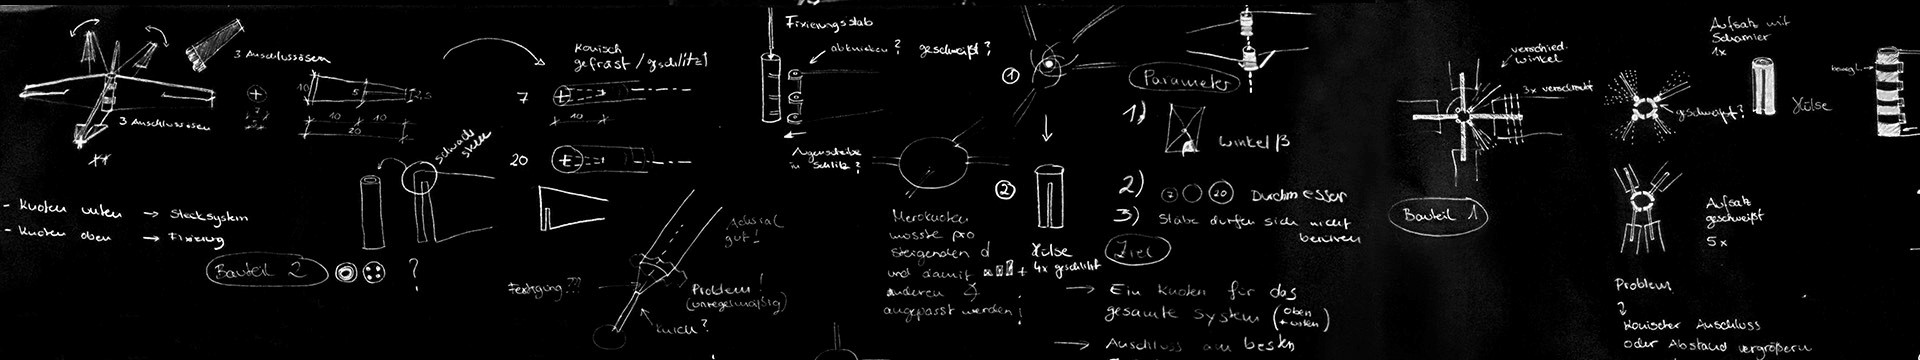 3 Anschlussösen
3 Anschlussösen
10
5
2,5
10
10
20
Konisch
gefräst / geschlitzt
7
10
20
schwach
stelle
- Knoten unten → Stecksystem
- Knoten oben → Fixierung
Bauteil 2
?
Fixierungsstab
abknicken?
geschweißt?
in Schlitz?
Material
gut!
Fertigung???
Problem!
(unregelmäßig)
Knick?
1
2
Hülse
4x geschlitzt
Meroknoten
müsste pro
steigenden d
und damit
anderen
angepasst werden!
Parameter
1)
Winkel β
2)
7
20
Durchmesser
3) Stäbe dürfen sich nicht
berühren
Ziel
→ Ein Knoten für das
gesamte System (oben
+ unten)
→ Anschluss am besten
verschied.
winkel
3x verschraubt
Bauteil 1
Aufsatz mit
Scharnier
1x
geschweißt?
Hülse
bewegl.
Aufsatz
geschweißt
5x
Problem
Konischer Anschluss
oder Abstand vergrößern